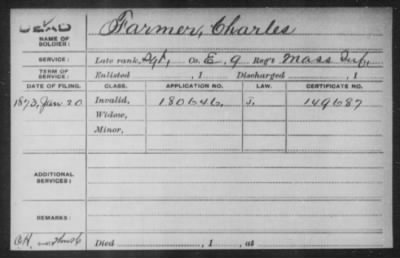 DEAD
NAME OF SOLDIER: Farmer, Charles
SERVICE: Late rank, Sgt, Co. E, 9 Reg't Mass Inf,
TERM OF SERVICE: Enlisted , 1 Discharged , 1
DATE OF FILING. CLASS. APPLICATION NO. LAW. CERTIFICATE NO.
1873, Jan 20 Invalid, 180646, 149687
Widow,
Minor,
ADDITIONAL SERVICES:
REMARKS:
Died , 1 , at